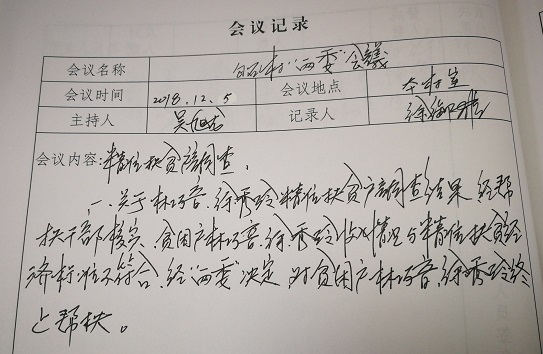 会议记录
会议名称 村"两委"会議
会议时间 2018.12.5 会议地点 本村室
主持人 吴旭 记录人 徐
会议内容:精准扶贫户调查。
一、关于林巧音、徐秀玲精准扶贫户调查结果,经帮
扶干部核实,贫困户林巧音、徐秀玲收入情况与精准扶贫经
济标准不符合,经"两委"决定,对贫困户林巧音、徐秀玲终
止帮扶。